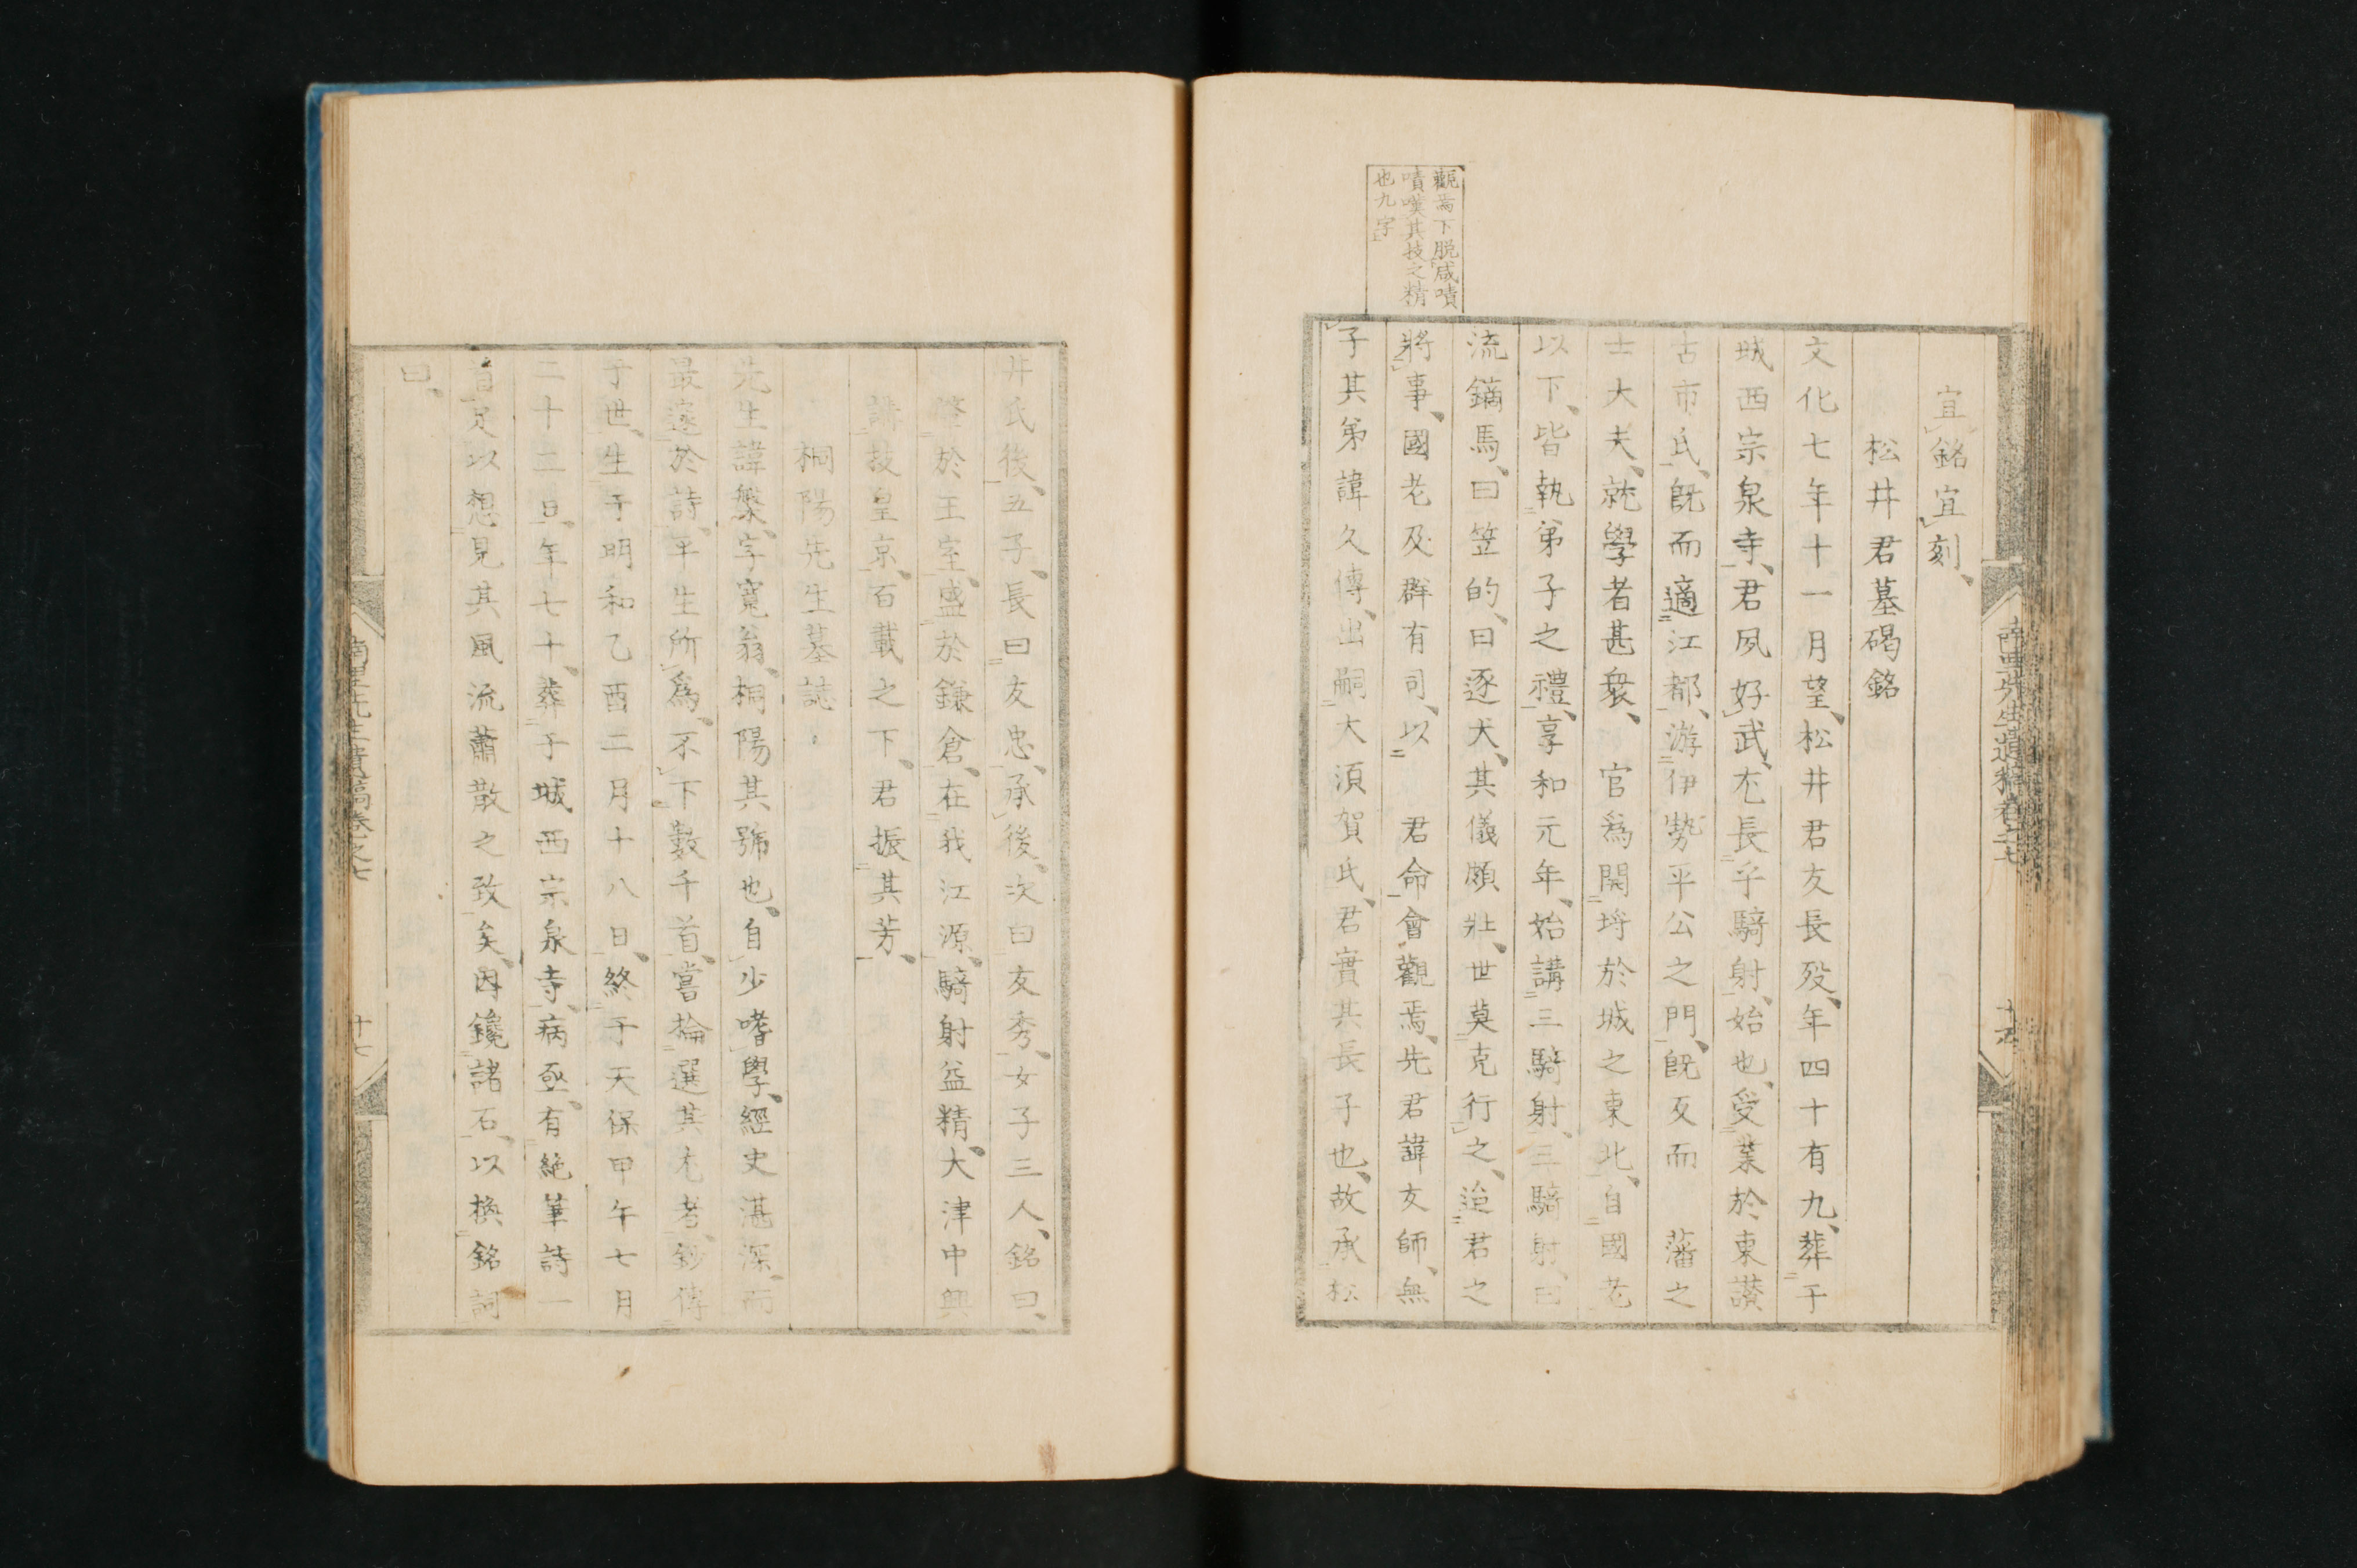 觀焉下脱咸嘖
嘖嘆其技之精
也九字
宜銘宜刻、
松井君墓碣銘
文化七年十一月望、松井君友長歿、年四十有九、葬于
城西宗泉寺、君夙好武、尤長乎騎射、始也、受業於東讃
古市氏、既而適江都、游伊勢平公之門、既反而　藩之
士大夫、就學者甚衆、　官爲開埒於城之東北、自國老
以下、皆執弟子之禮、享和元年、始講三騎射、三騎射、曰
流鏑馬、曰笠的、曰逐犬、其儀頗壯、世莫克行之、迨君之
將事、國老及群有司、以　君命會觀焉、先君諱友師、無
子其弟諱久傳、出嗣大須賀氏、君實其長子也、故承松
井氏後、五子、長曰友忠、承後、次曰友秀、女子三人、銘曰、
肇於王室、盛於鎌倉、在我江源、騎射益精、大津中興
講技皇京、百載之下、君振其芳、
桐陽先生墓誌
先生諱槃、字寬翁、桐陽其號也、自少嗜學、經史湛深、而
最邃於詩、平生所爲、不下數千首、嘗掄選其尤者、鈔傳
于世、生于明和乙酉二月十八日、終于天保甲午七月
二十二日、年七十、葬于城西宗泉寺、病亟、有絶筆詩一
首、足以想見其風流蕭散之致矣、因鑱諸石、以換銘詞
曰、
南里先生遺稿卷之七
十七